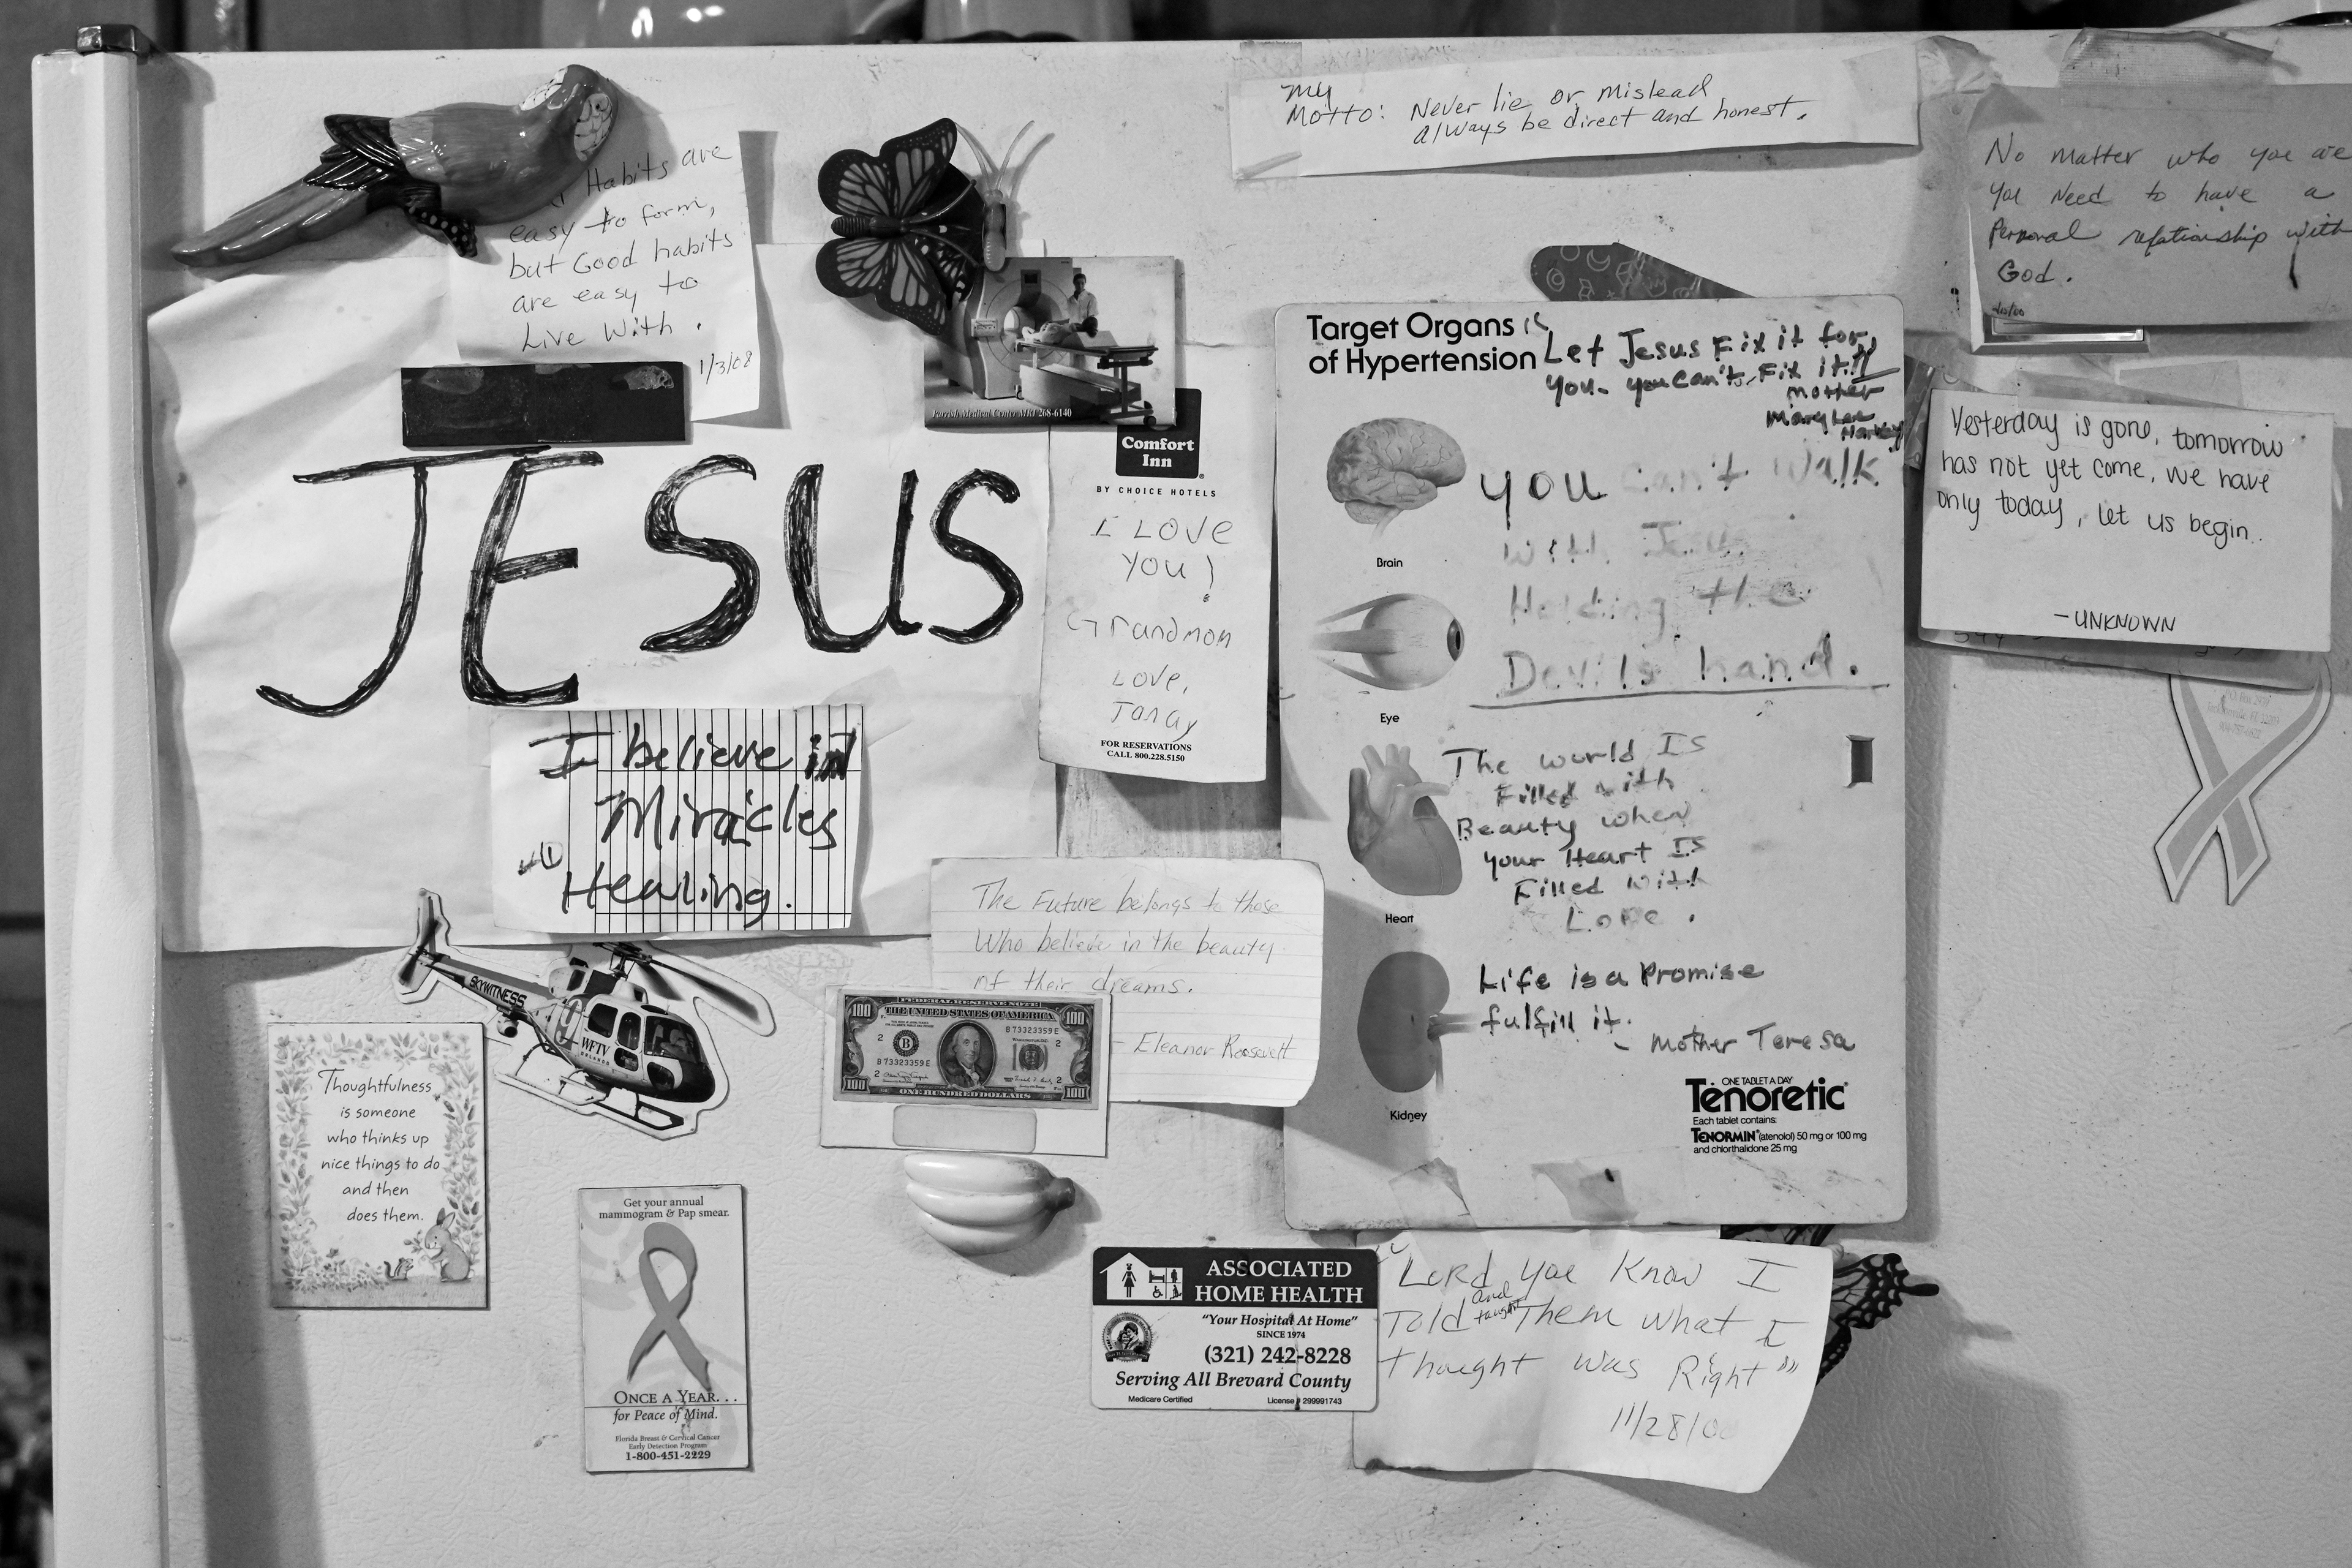 Habits are
easy to form,
but Good habits
are easy to
Live With.
1/3/08
My
Motto: Never lie or mislead
always be direct and honest.
No matter who you are
you need to have a
Personal relationship with
God.
Parrish Medical Center MRI 268-6140
JESUS
I believe in
Miracles
Healing.
Comfort
Inn
BY CHOICE HOTELS
I LOVE
YOU!
Grandmom
LOVE,
Tanay
FOR RESERVATIONS
CALL 800.228.5150
Target Organs
of Hypertension
Let Jesus Fix it for
you- you can't Fix it!!
Mother
Mary Lee
Harvey
you can't walk
with Jesus
Holding the
Devils hand.
Brain
Eye
The world Is
Filled with
Beauty when
your Heart Is
Filled With
Love.
Heart
Life is a Promise
fulfill it.
- Mother Teresa
Kidney
ONE TABLET A DAY
Tenoretic®
Each tablet contains:
TENORMIN® (atenolol) 50 mg or 100 mg
and chlorthalidone 25 mg
Yesterday is gone, tomorrow
has not yet come, we have
only today, let us begin..
-UNKNOWN
The Future belongs to those
Who believe in the beauty
of their dreams.
- Eleanor Roosevelt
SKYWITNESS
9
WFTV
ORLANDO
FEDERAL RESERVE NOTE
THE UNITED STATES OF AMERICA
100
100
B 73323359 E
B
2
2
B 73323359 E
2
2
100
ONE HUNDRED DOLLARS
100
Thoughtfulness
is someone
who thinks up
nice things to do
and then
does them.
Get your annual
mammogram & Pap smear.
ONCE A YEAR...
for Peace of Mind.
Florida Breast & Cervical Cancer
Early Detection Program
1-800-451-2229
ASSOCIATED
HOME HEALTH
"Your Hospital At Home"
SINCE 1974
(321) 242-8228
Serving All Brevard County
Medicare Certified
License # 299991743
"Lord you Know I
Told and taught Them what I
thought was Right"
11/28/0